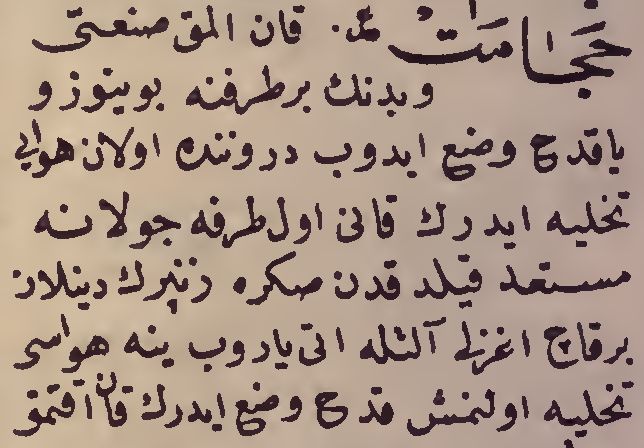 حجامت ع. قان المق صنعتى
وبدنك برطرفنه بوينوز و
ياقدح وضع ايدوب دروننده اولان هوايى
تخليه ايدرك قانى اول طرفه جولانه
مستعد قيلدقدن صكره نشتر دينلان
برقاچ اغزلى آلتله اتى ياروب ينه هواسى
تخليه اولنمش قدح وضع ايدرك قان اقتمق